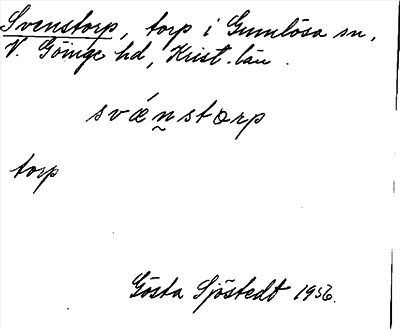 Svenstorp, torp i Gumlösa sn,
V. Göinge hd, Krist. län.
svǽn̰storp
torp
Gösta Sjöstedt 1956.